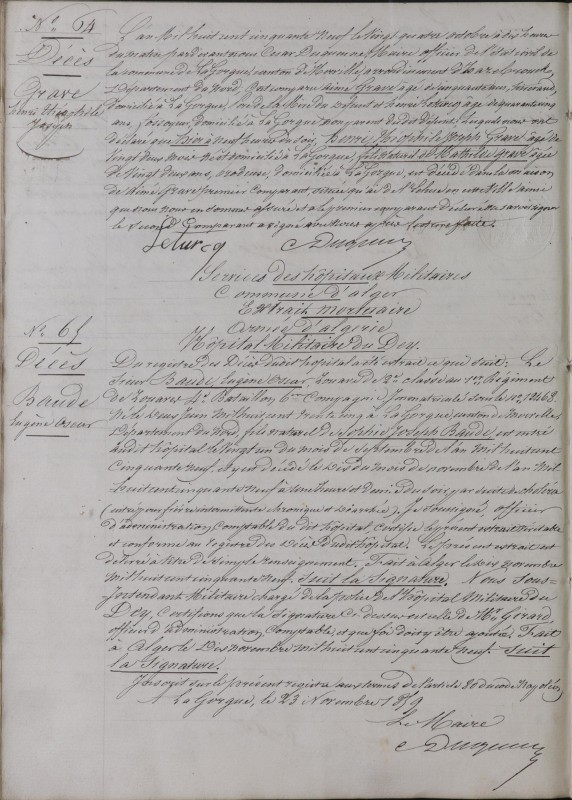 No 64
Décès
Grave
henri théophile
Joseph
L'an Mil huit cent cinquante neuf le vingt quatre octobre à dix heures
du matin par devant nous Cesar Duquenne Maire officier de l'état civil de
la commune de La Gorgue, canton de Merville, arrondissement d'hazebrouck,
Département du Nord, Ont comparu aimé Grave âgé de cinquante ans,
domicilié à La Gorgue, du défunt et henri âgé de cinquante cinq
ans, domicilié à La Gorgue non parent du dit défunt, lesquels nous ont
déclaré que hier à neuf heures du soir, henri théophile Joseph Grave âgé de
vingt deux domicilié à La Gorgue, fils naturel de Mathilde Grave âgée
de ans, domiciliée à La Gorgue, est décédé dans la maison
de aimé Grave premier comparant,
que nous nous en sommes assuré et a le premier comparant déclaré ne savoir signer
le second Comparant a signé avec Nous après lecture faite.
Leturcq C Duquenne
No 65
Décès
Baude
Eugène Oscar
Services des hôpitaux Militaires
Commune d'alger
Extrait mortuaire
Armée d'algerie
Hôpital Militaire du Dey.
Du registre des Décès dudit hôpital a été extrait ce qui suit: Le
Sieur Baude, Eugène Oscar, Zouave de 2e classe au 1er Régiment
de Zouaves 4e Bataillon 6me Compagnie, Immatriculé sous le no 12468.
Né le deux Juin Mil huit cent trente cinq à La Gorgue, canton de Merville
Département du Nord, fils naturel de Sophie Joseph Baude est entré
audit hôpital le vingt un du mois de septembre de l'an Mil huit cent
Cinquante neuf. Y est décédé le dix du mois de novembre de l'an Mil
huit cent cinquante neuf à heure et demie du soir, par suite de choléra
(entré pour fièvre intermittente chronique et diarrhée). Je soussigné, officier
d'administration Comptable dudit hôpital certifie le présent extrait véritable
et conforme au registre des Décès dudit hôpital. Le présent extrait est
délivré à titre de simple renseignement. Fait à alger le dix novembre
mil huit cent cinquante neuf. Suit la Signature. Nous Sous-
Intendant Militaire chargé de la police de l'hôpital Militaire de
Dey, Certifions que la signature Ci-dessus est celle de Mr Girard,
officier d'administration Comptable, et que foi doit y être ajoutée. Fait
à Alger le novembre mil huit cent cinquante neuf. Suit
la Signature.
Inscrit sur le présent registre aux termes de l'article 80 du code Napoléon
A La Gorgue, le 23 Novembre 1859
Le Maire
C Duquenne